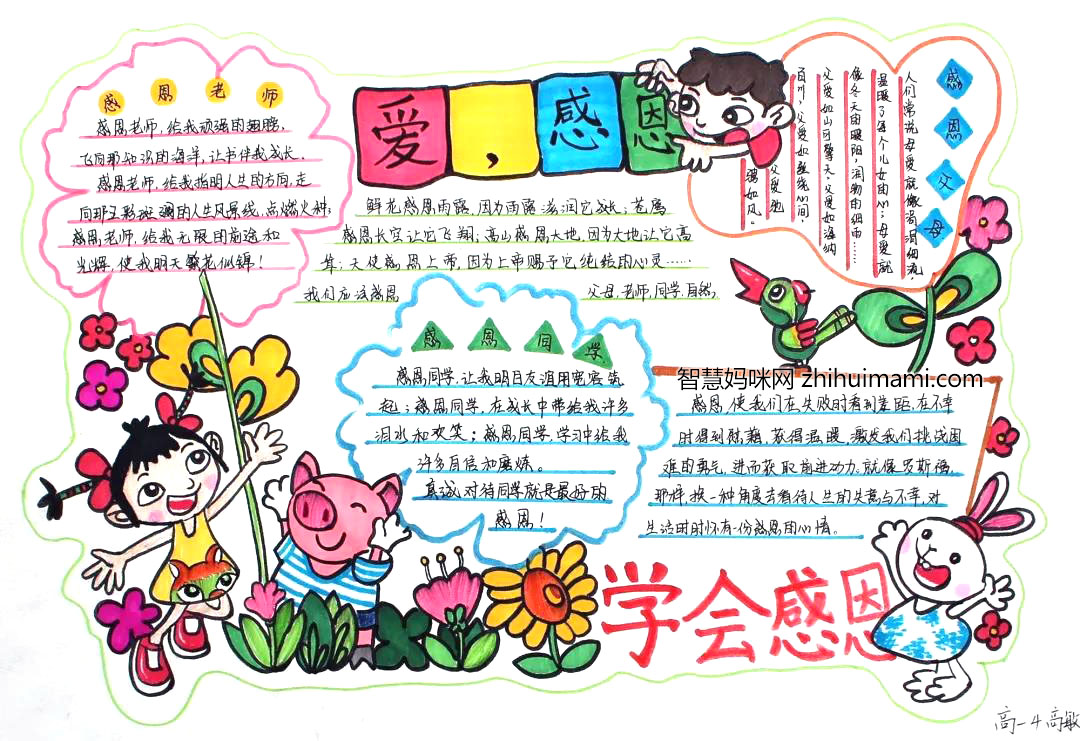 感恩老师
感恩老师,给我顽强的翅膀,
飞向那知识的海洋,让书伴我成长.
感恩老师,给我指明人生的方向,走
向那五彩斑斓的人生风景线,点燃火种;
感恩老师,给我无限的前途和
光辉,使我明天繁花似锦!
爱,感恩
鲜花感恩雨露,因为雨露滋润它成长;苍鹰
感恩长空让它飞翔;高山感恩大地,因为大地让它高
耸;天使感恩上帝,因为上帝赐予它纯转的心灵……
我们应该感恩
父母,老师,同学,自然,
感恩父母
人们常说,母爱就像涓涓细流,
温暖了每个儿女的心;母爱就
像冬天的暖阳,润物的细雨……
父爱如山可擎天,父爱如海纳
百川,父爱如丝绕心间,
父爱魂
强如风.
感恩同学
感恩同学,让我明白友谊用宽容筑
起;感恩同学,在成长中带给我许多
泪水和欢笑;感恩同学,学习中给我
许多自信和磨炼。
真诚对待同学就是最好的
感恩!
智慧妈咪网 zhihuimami.com
感恩,使我们在失败时看到差距,在不幸
时得到慰藉,获得温暖,激发我们挑战困
难的勇气,进而获取前进动力.就像罗斯福
那样,换一种角度去看待人生的失意与不幸,对
生活时时怀有一份感恩的心情。
学会感恩
高一4高敏